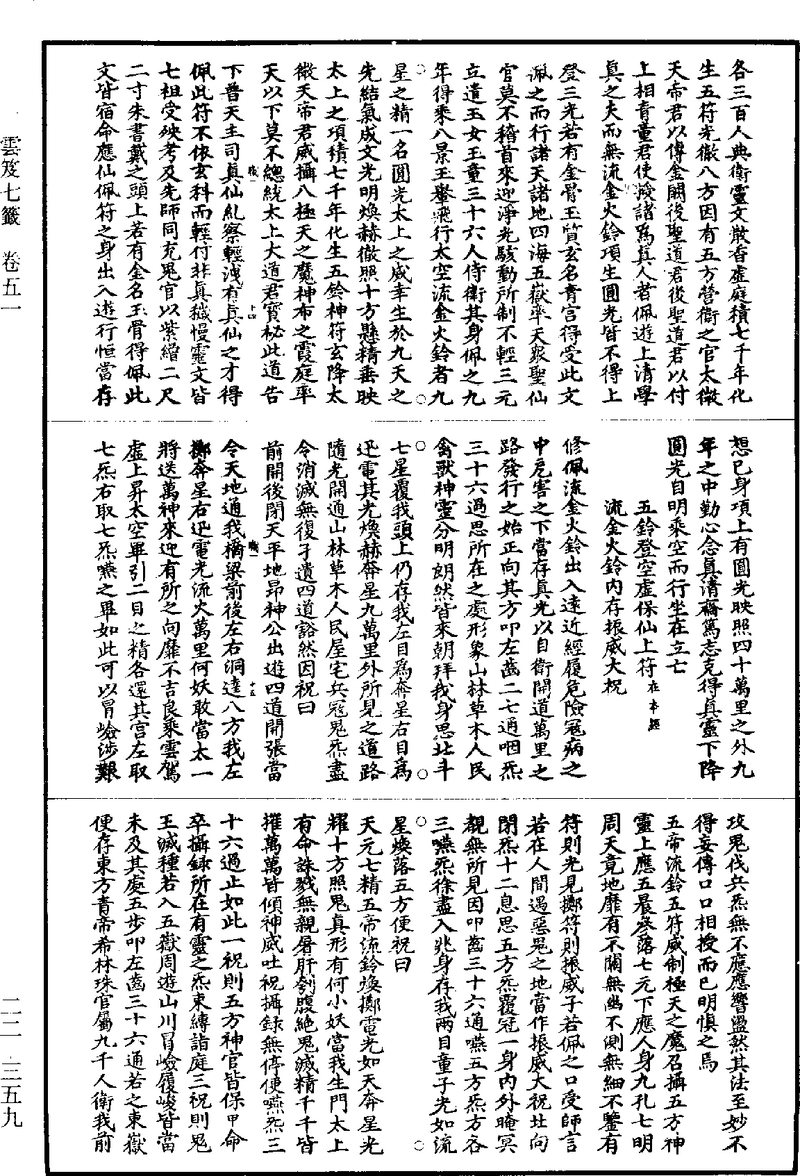 各三百人典衛靈文散香虛庭積七千年化
生五符光徹八方因有五方營衛之官太微
天帝君以傳金闕後聖道君後聖道君以付
上相青童君使授諸爲真人者佩遊上清學
真之夫而無流金火鈴項生圓光皆不得上
登三光若有金骨玉質玄名青宮得受此文
佩之而行諸天諸地四海五嶽率天衆聖仙
官莫不稽首來迎淨光駭動所制不輕三元
立遣玉女玉童三十六人侍衛其身佩之九
年得乘八景玉轝飛行太空流金火鈴者九
星之精一名圓光太上之威章生於九天之
先結氣成文光明煥赫徹照十方懸精垂映
太上之項積七千年化生五鈴神符玄降太
微天帝君威攝八極天之魔神布之霞庭率
天以下莫不總統太上大道君寶秘此道告
下普天主司真仙糺察輕洩有真仙之才得
佩此符不依玄科而輕付非真穢慢靈文皆
七祖受殃考及先師同充鬼官以紫繒二尺
二寸朱書戴之頭上若有金名玉骨得佩此
文皆宿命應仙佩符之身出入遊行恒當存
想已身項上有圓光映照四十萬里之外九
年之中勤心念真清齋篤志克得真靈下降
圓光自明乘空而行坐在立亡
五鈴登空虛保仙上符在本經
流金火鈴內存振威大祝
修佩流金火鈴出入遠近經履危險寇病之
中危害之下當存真光以自衛開道萬里之
路發行之始正向其方叩左齒二七通咽炁
三十六過思所在之處形象山林草木人民
禽獸神靈分明朗然皆來朝拜我身思北斗
七星覆我頭上仍存我左目爲奔星右目爲
迅電其光煥赫奔星九萬里外所見之道路
隨光開通山林草木人民屋宅兵寇鬼炁盡
令消滅無復孑遺四道豁然因祝曰
前開後閉天平地昂神公出遊四道開張當
令天地通我橋梁前後左右洞達八方我左
擲奔星右迅電光流火萬里何妖敢當太一
將送萬神來迎有所之向靡不吉良乘雲駕
虛上昇太空畢引二目之精各還其宮左取
七炁右取七炁嚥之畢如此可以冒嶮涉艱
攻鬼伐兵炁無不應應響盪然其法至妙不
得妄傳口口相授而已明慎之焉
五帝流鈴五符威制極天之魔召攝五方神
靈上應五晨參落七元下應人身九孔七明
周天竟地靡有不關無幽不測無細不鑒有
符則光見擲符則振威子若佩之口受師言
若在人間遇惡鬼之地當作振威大祝北向
閉炁十二息思五方炁覆冠一身內外晻冥
覩無所見因叩齒三十六通嚥五方炁方各
三嚥炁徐盡入兆身存我兩目童子光如流
星煥落五方便祝曰
天元七精五帝流鈴煥擲電光如天奔星光
耀十方照鬼真形有何小妖當我生門太上
有命誅戮無親屠肝刳腹絕鬼滅精千千皆
摧萬萬皆傾神威吐祝攝錄無停便嚥炁三
十六過止如此一祝則五方神官皆保甲命
卒攝錄所在有靈之炁束縛詣庭三祝則鬼
王滅種若入五嶽周遊山川冒嶮履峻皆當
未及其處五步叩左齒三十六通若之東嶽
便存東方青帝希林珠官屬九千人衛我前
雲笈七籤　卷五一
二二―三五九